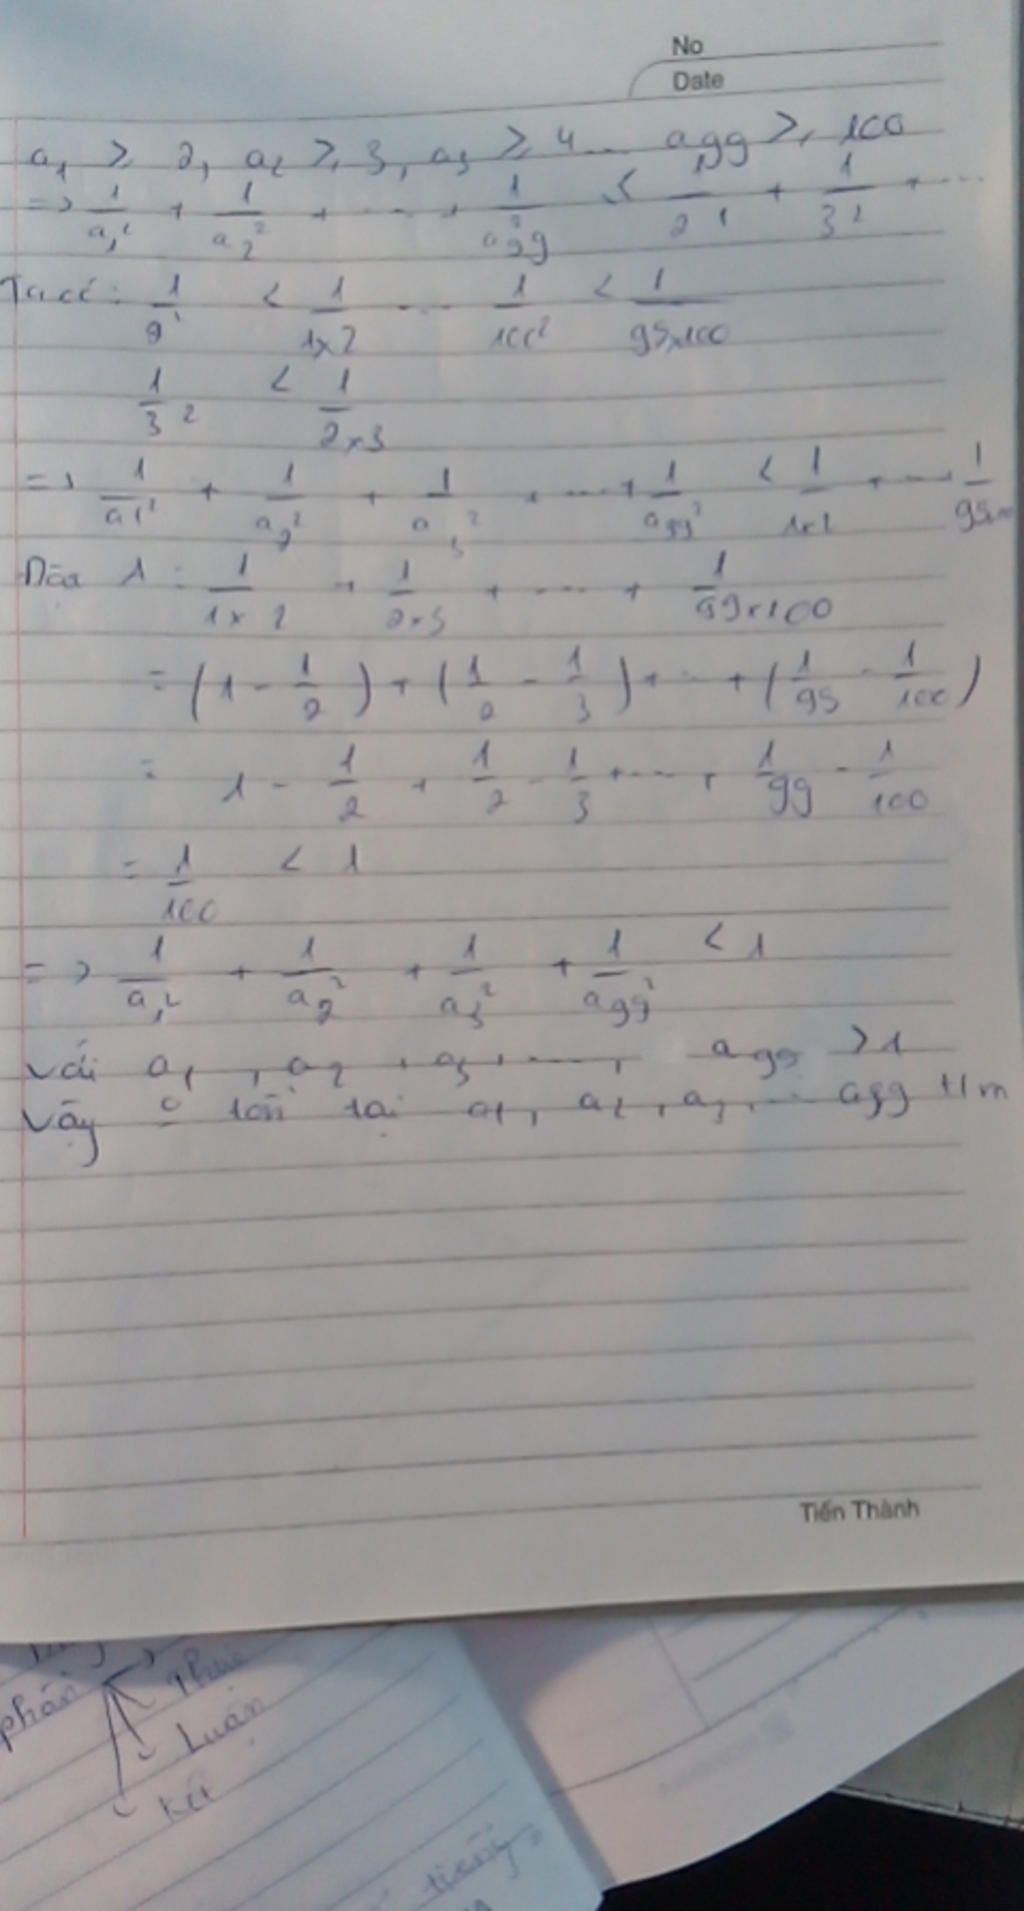 No
Date
a₁ ≥ 2, a₂ ≥ 3, a₃ ≥ 4 ... a₉₉ ≥ 100
=> 1/a₁² + 1/a₂² + ... + 1/a₉₉² ≤ 1/2² + 1/3² + ...
Ta có: 1/2² < 1/1x2 ... 1/100² < 1/99x100
1/3² < 1/2x3
=> 1/a₁² + 1/a₂² + 1/a₃² + ... + 1/a₉₉² < 1/1x2 + ... 1/99
1 = 1/1x2 + 1/2x3 + ... + 1/99x100
= (1 - 1/2) + (1/2 - 1/3) + ... + (1/99 - 1/100)
= 1 - 1/2 + 1/2 - 1/3 + ... + 1/99 - 1/100
= 1/100 < 1
=> 1/a₁² + 1/a₂² + 1/a₃² + 1/a₉₉² < 1
với a₁, a₂, a₃, ..., a₉₉ > 1
Vậy tồn tại a₁, a₂, a₃, ... a₉₉ Tm
Tiến Thành
phán
Luận
Kết
tiếng